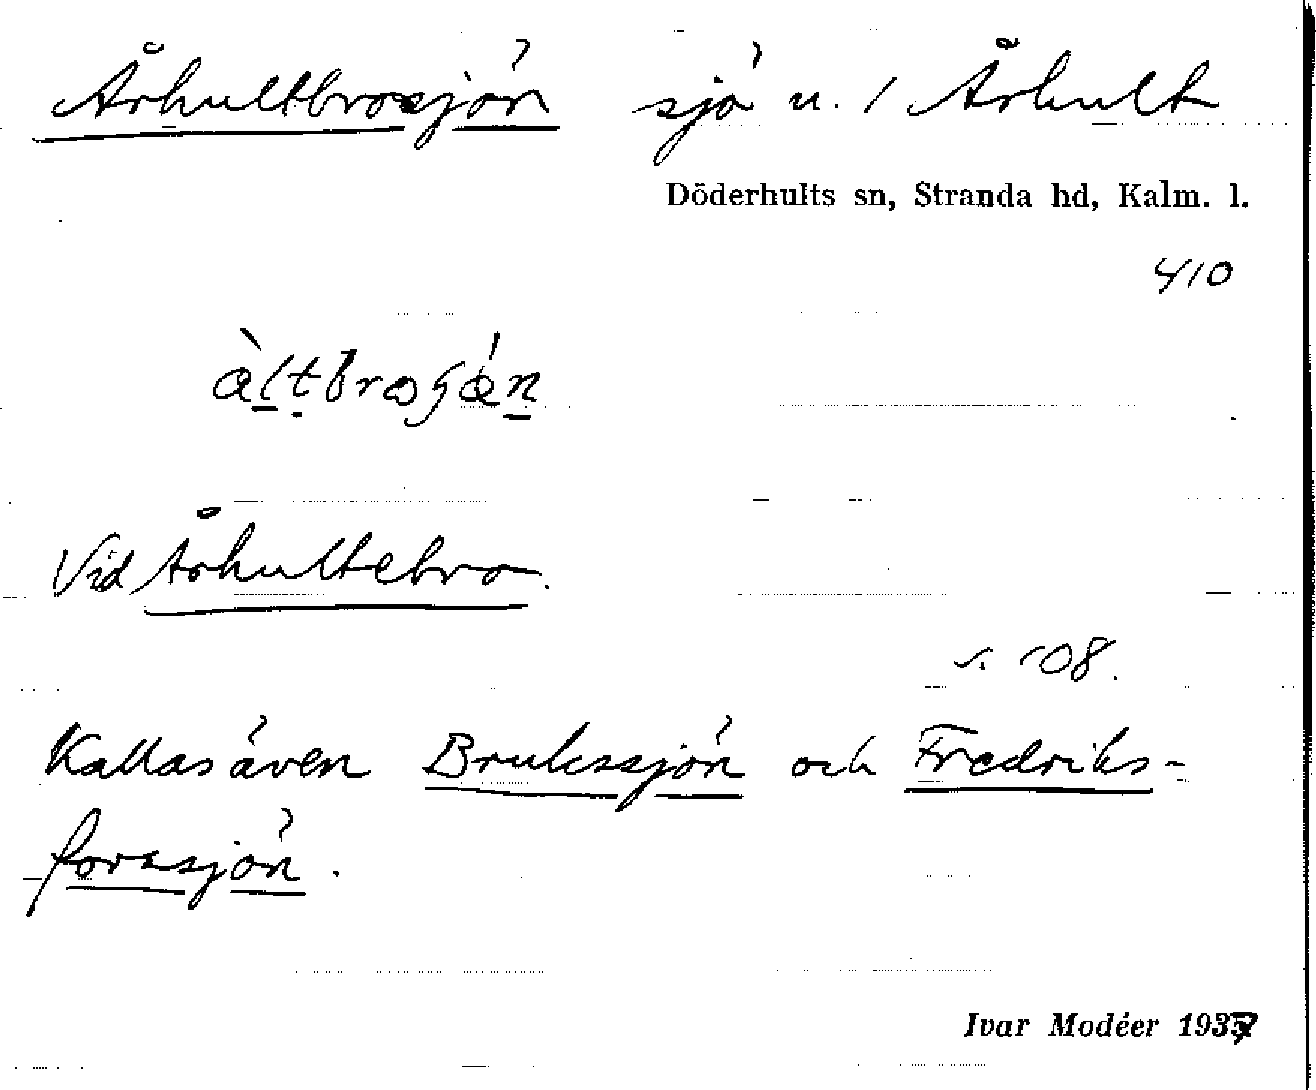 Århultbrosjön sjö u. / Århult
Döderhults sn, Stranda hd, Kalm. l.
410
Vid Århultebro.
s. 108.
Kallas även Brukssjön och Fredriks-
forssjön.
Ivar Modéer 1937